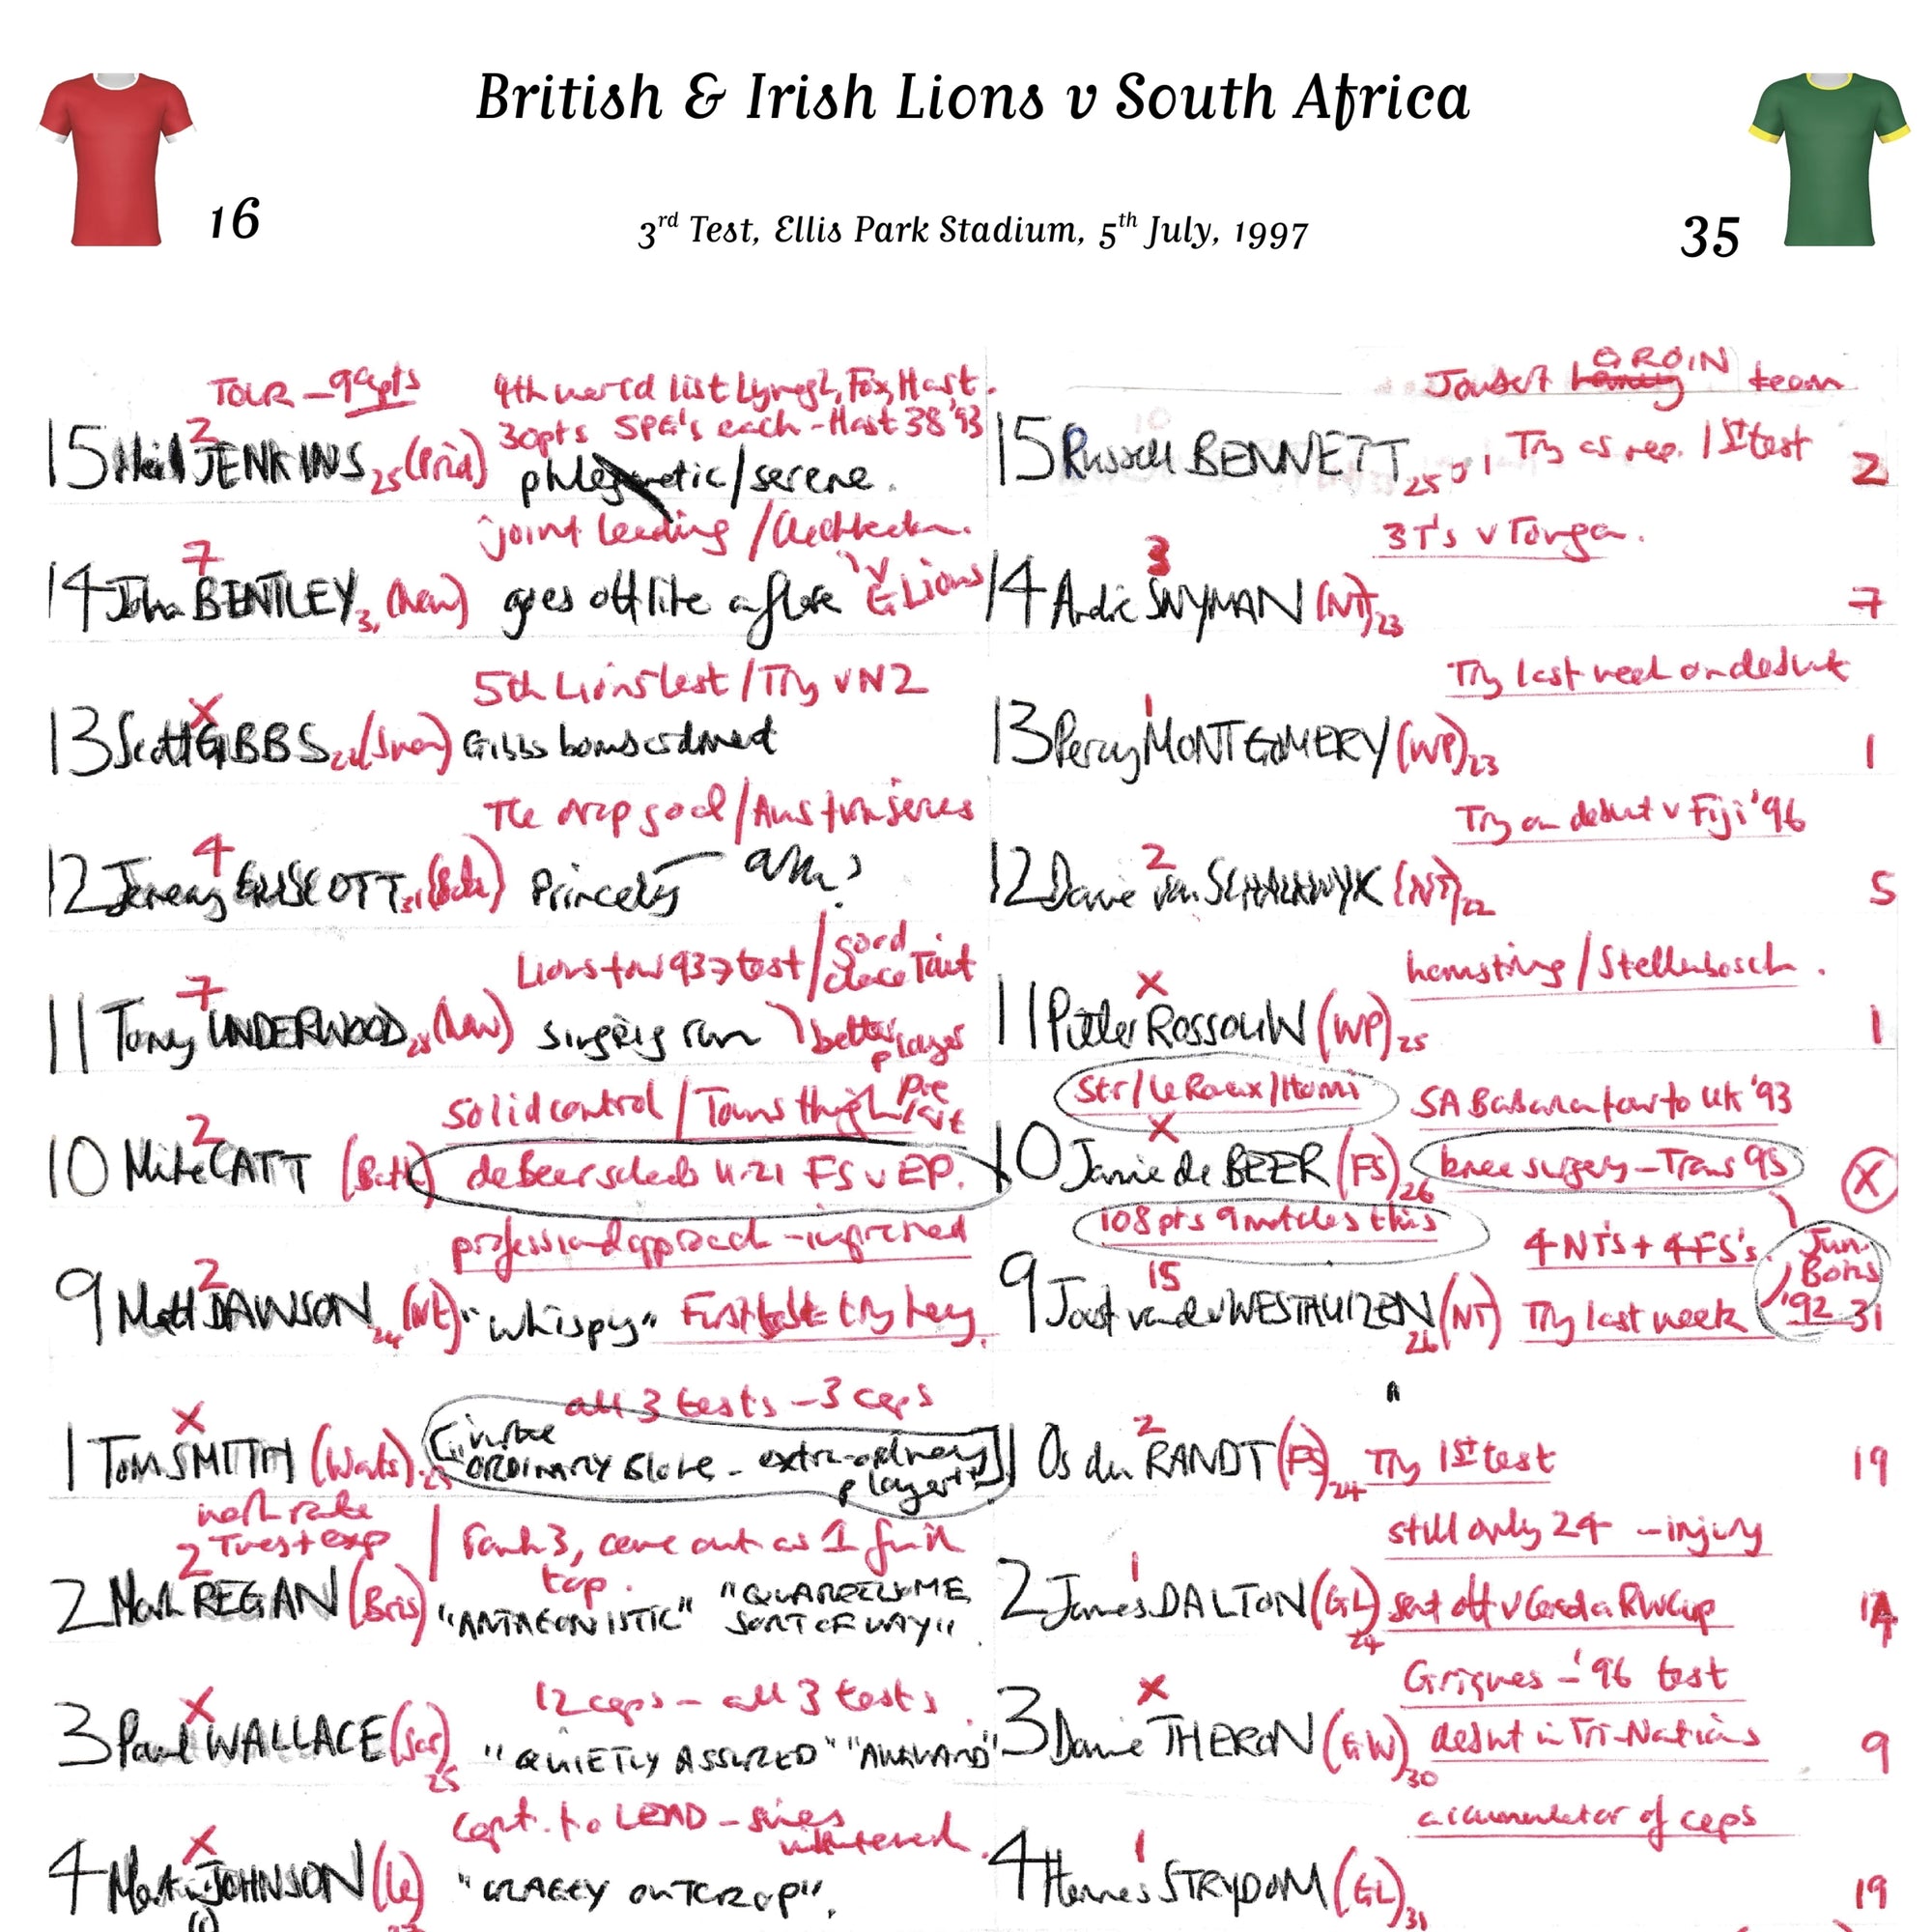 British & Irish Lions v South Africa
16
3rd Test, Ellis Park Stadium, 5th July, 1997
35
TOUR
4th world list Lynagh, Fox, Hast.
30pts 5PG's each - Hast 38 '93
2
15 Neil JENKINS 25 (Prid)
phlegmatic/serene.
joint leading
7
14 John BENTLEY 3, (New) goes off like a
v G Lions
5th Lions test / Try v NZ
X
13 Scott GIBBS (Swan) Gibbs bombardment
The drop goal / Aus
4
12 Jeremy GUSCOTT 31 (Bath) Princely
Lions tour 93 → test / good
Tait
7
11 Tony UNDERWOOD 28 (New) run
better player
solid control / Towns thigh
2
10 Mike CATT (Bath) de Beer U-21 FS v EP.
professional approach - impressed
2
9 Matt DAWSON 24 (Nt) "whispy" First test try hero.
all 3 tests - 3 caps
X
1 Tom SMITH (Wats). 25
ORDINARY Bloke - extra-ordinary player"
work rate
2
Rank 3, came out as 1
top.
2 Mark REGAN (Bris) "ANTAGONISTIC" "QUARRELSOME
SORT OF WAY".
X
12 caps - all 3 tests
3 Paul WALLACE (Sar) 25 "QUIETLY ASSURED" "AWKWARD"
Capt. to LEAD - series
X
4 Martin JOHNSON (Le) "CRAGGY OUTCROP".
Joubert GROIN team
15 Russell BENNETT 25, 1 Try as rep. 1st test 2
3 T's v Tonga.
3
14 Andre SNYMAN (NT) 23 7
Try last week on debut
1
13 Percy MONTGOMERY (WP) 23 1
Try on debut v Fiji '96
2
12 Danie van SCHALKWYK (NT) 22 5
hamstring / Stellenbosch.
X
11 Pieter ROSSOUW (WP) 25 1
Str/le Roux/Honi
SA tour to UK '93
X
10 Jannie de BEER (FS) 26 knee surgery - Trans 95 X
108 pts 9 matches this
4 NT's + 4 FS's
15
9 Joost van der WESTHUIZEN (NT) 26 Try last week 31
'92
2
1 Os du RANDT (FS) 24 Try 1st test 19
still only 24 - injury
1
2 James DALTON (GL) 24 sent off v Canada RWCup
Griques - '96 test
X
3 Dawie THERON (GW) 30 debut in Tri-Nations 9
accumulator of caps
1
4 Hannes STRYDOM (GL) 31 19